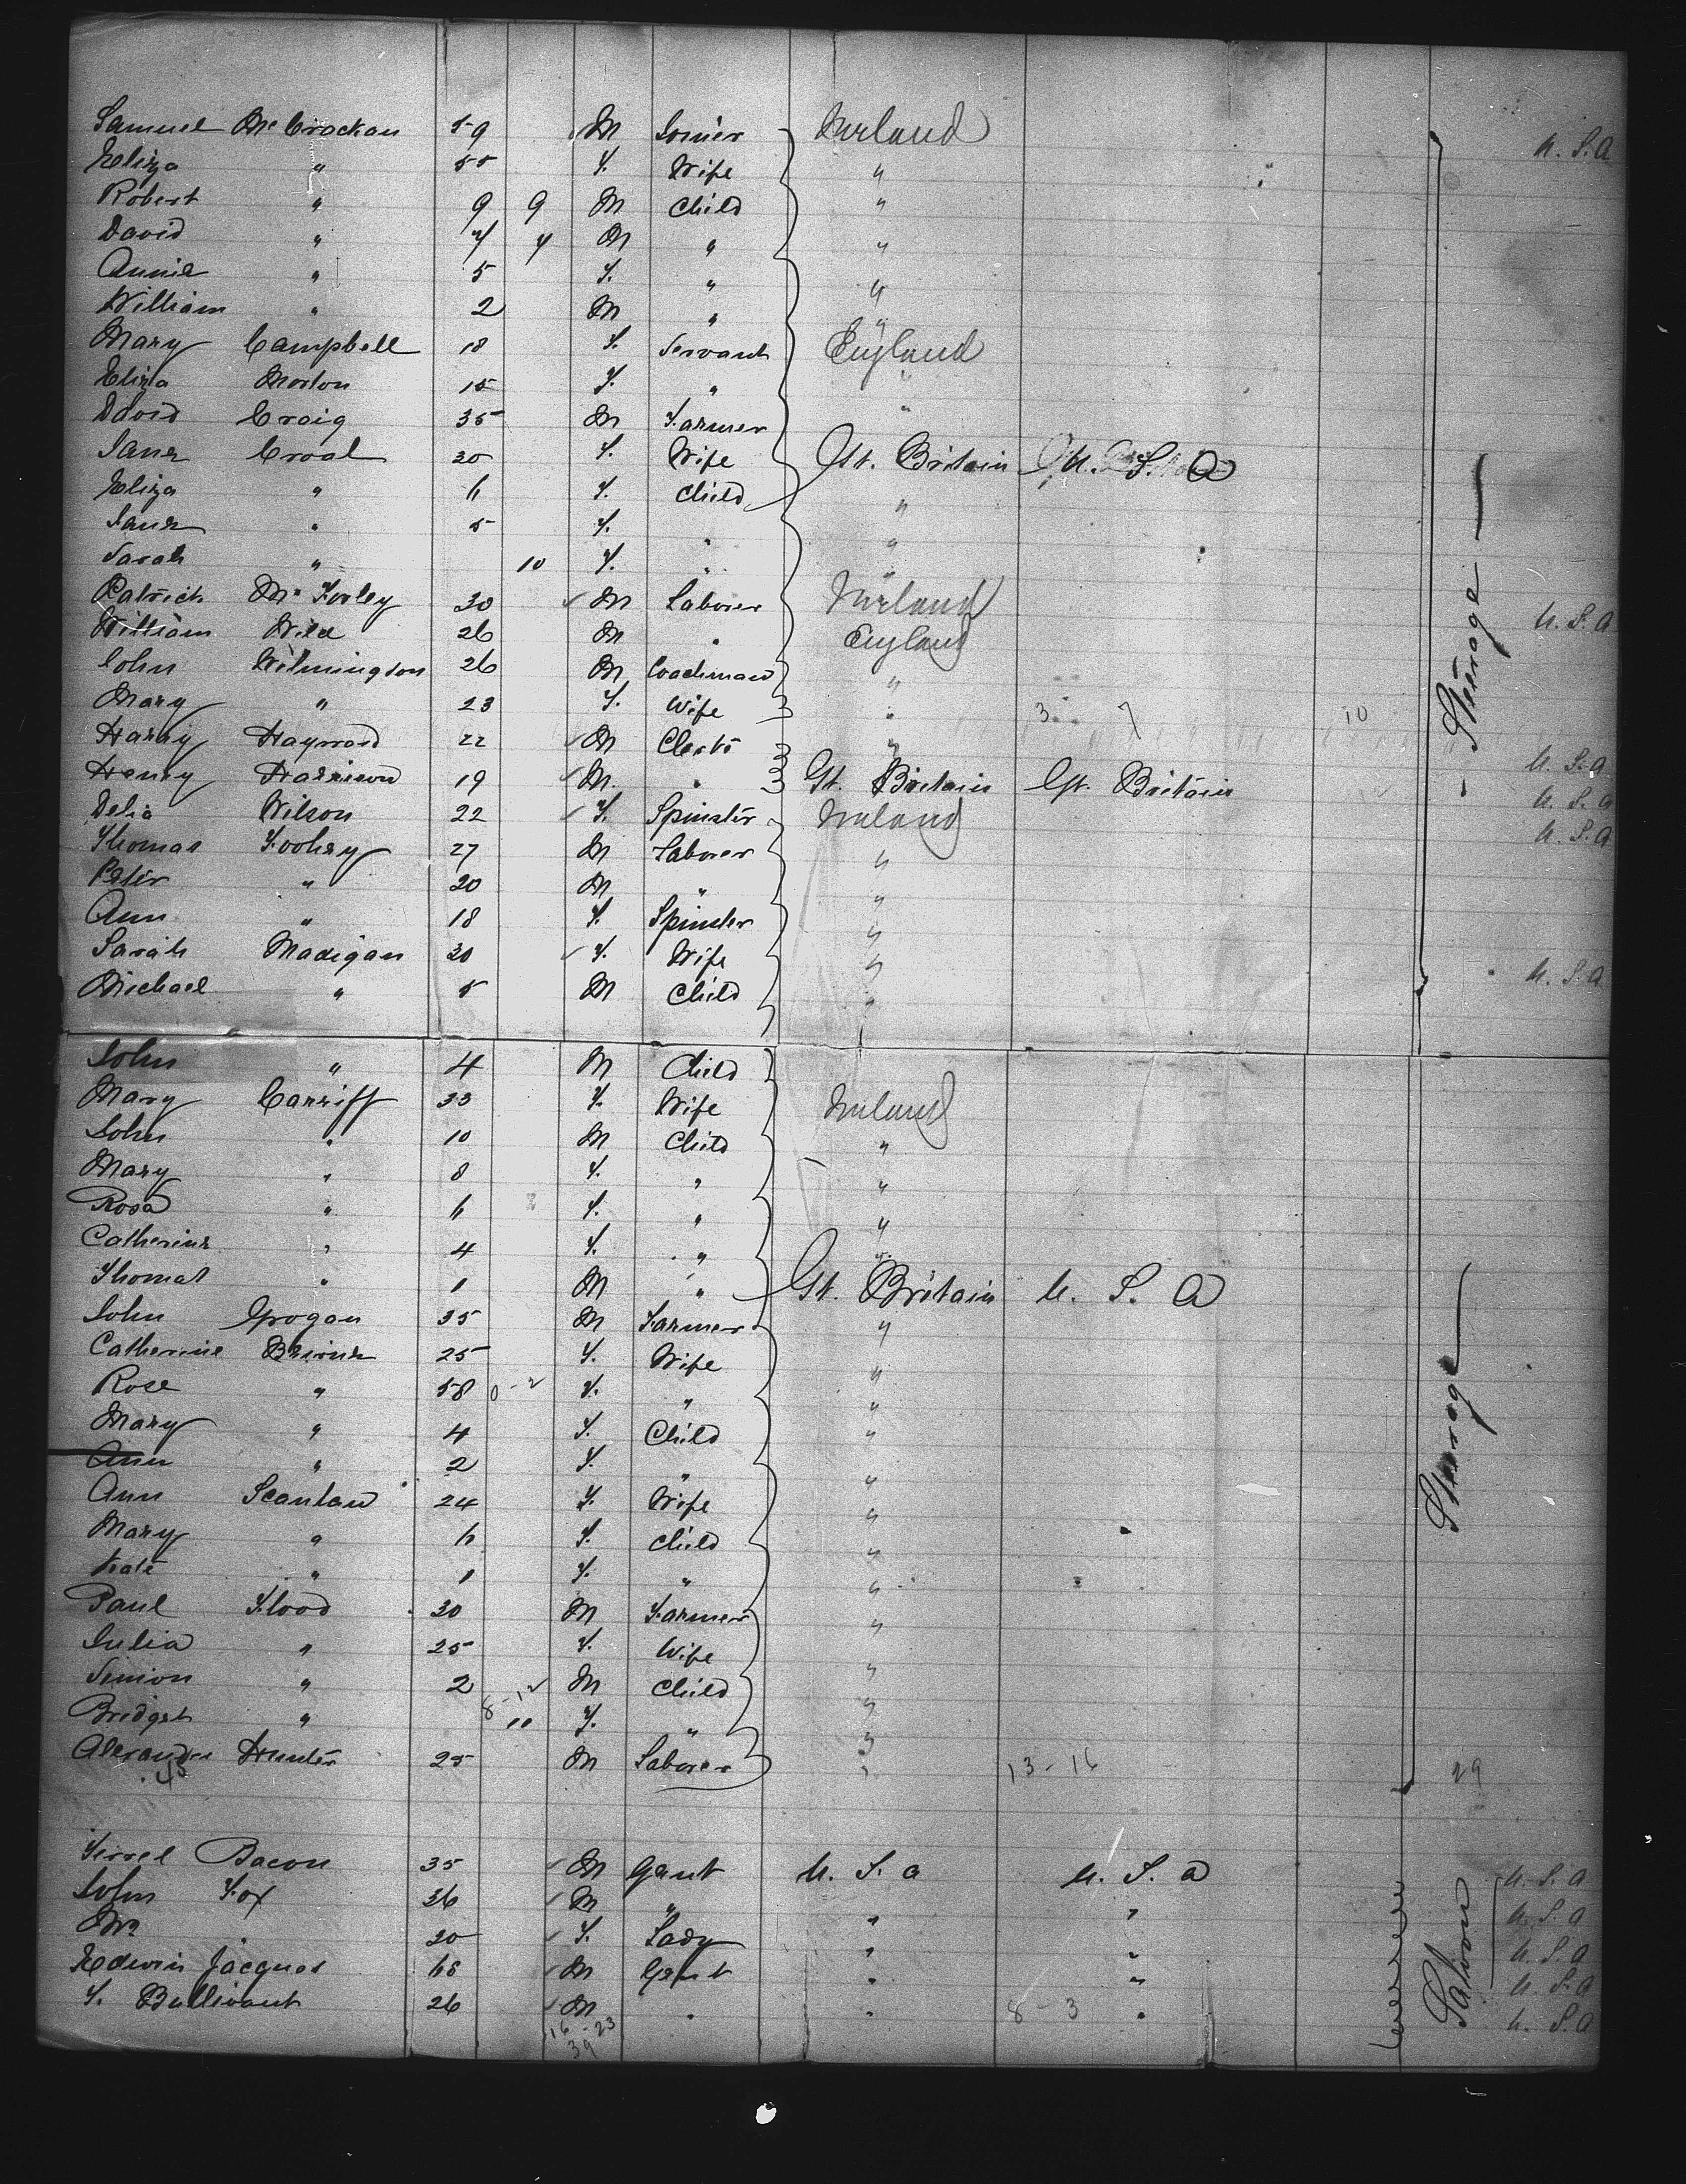 Samuel McCrackan 59 M Joiner Ireland U.S.A
Eliza " 55 F. Wife "
Robert " 9 9 M Child "
David " 4 4 M " "
Annie " 5 F. " "
William " 2 M " "
Mary Campbell 18 F. Servant England
Eliza Morton 15 F. " "
David Craig 35 M Farmer "
Jane Croal 30 F. Wife Gt. Britain U.S.A
Eliza " 6 F. Child "
Jane " 5 F. " "
Sarah " 10 F. " "
Patrick 30 M Laborer Ireland U.S.A
William Wild 26 M " England
John Wilmington 26 M Coachman "
Mary " 23 F. Wife " 3 7 10
Harry Hayward 22 M Clerk " U.S.A
Henry Harrison 19 M. " Gt. Britain Gt. Britain U.S.A
Delia Wilson 22 F. Spinster Ireland U.S.A
Thomas 27 M Laborer "
Peter " 20 M " "
Ann " 18 F. Spinster "
Sarah Madigan 30 F. Wife " U.S.A
Michael " 5 M Child "
Steerage
John " 4 M Child
Mary Carriff 33 F. Wife Ireland
John " 10 M Child "
Mary " 8 F. " "
Rosa " 6 F. " "
Catherine " 4 F. " "
Thomas " 1 M " Gt. Britain U.S.A
John Grogan 35 M Farmer "
Catherine 25 F. Wife "
Rose " 58 0-2 F. " "
Mary " 4 F. Child "
Ann " 2 F. " "
Ann Scanlan 24 F. Wife "
Mary " 6 F. Child "
Kate " 1 F. " "
Paul Flood 30 M Farmer "
Julia " 25 F. Wife "
Simon " 2 M Child "
Bridget " 8-12 11 F. " "
Alexander Hunter 25 M Laborer " 13-16 29
45
Steerage
Bacon 35 M Gent U.S.a U.S.a U.S.a
John Fox 36 M " " " U.S.a
Mrs 20 F. Lady " " U.S.a
Edwin Jacques 68 M Gent " " U.S.a
F. Bullivant 26 M " " 8-3 " U.S.a
16-23
39
Saloon